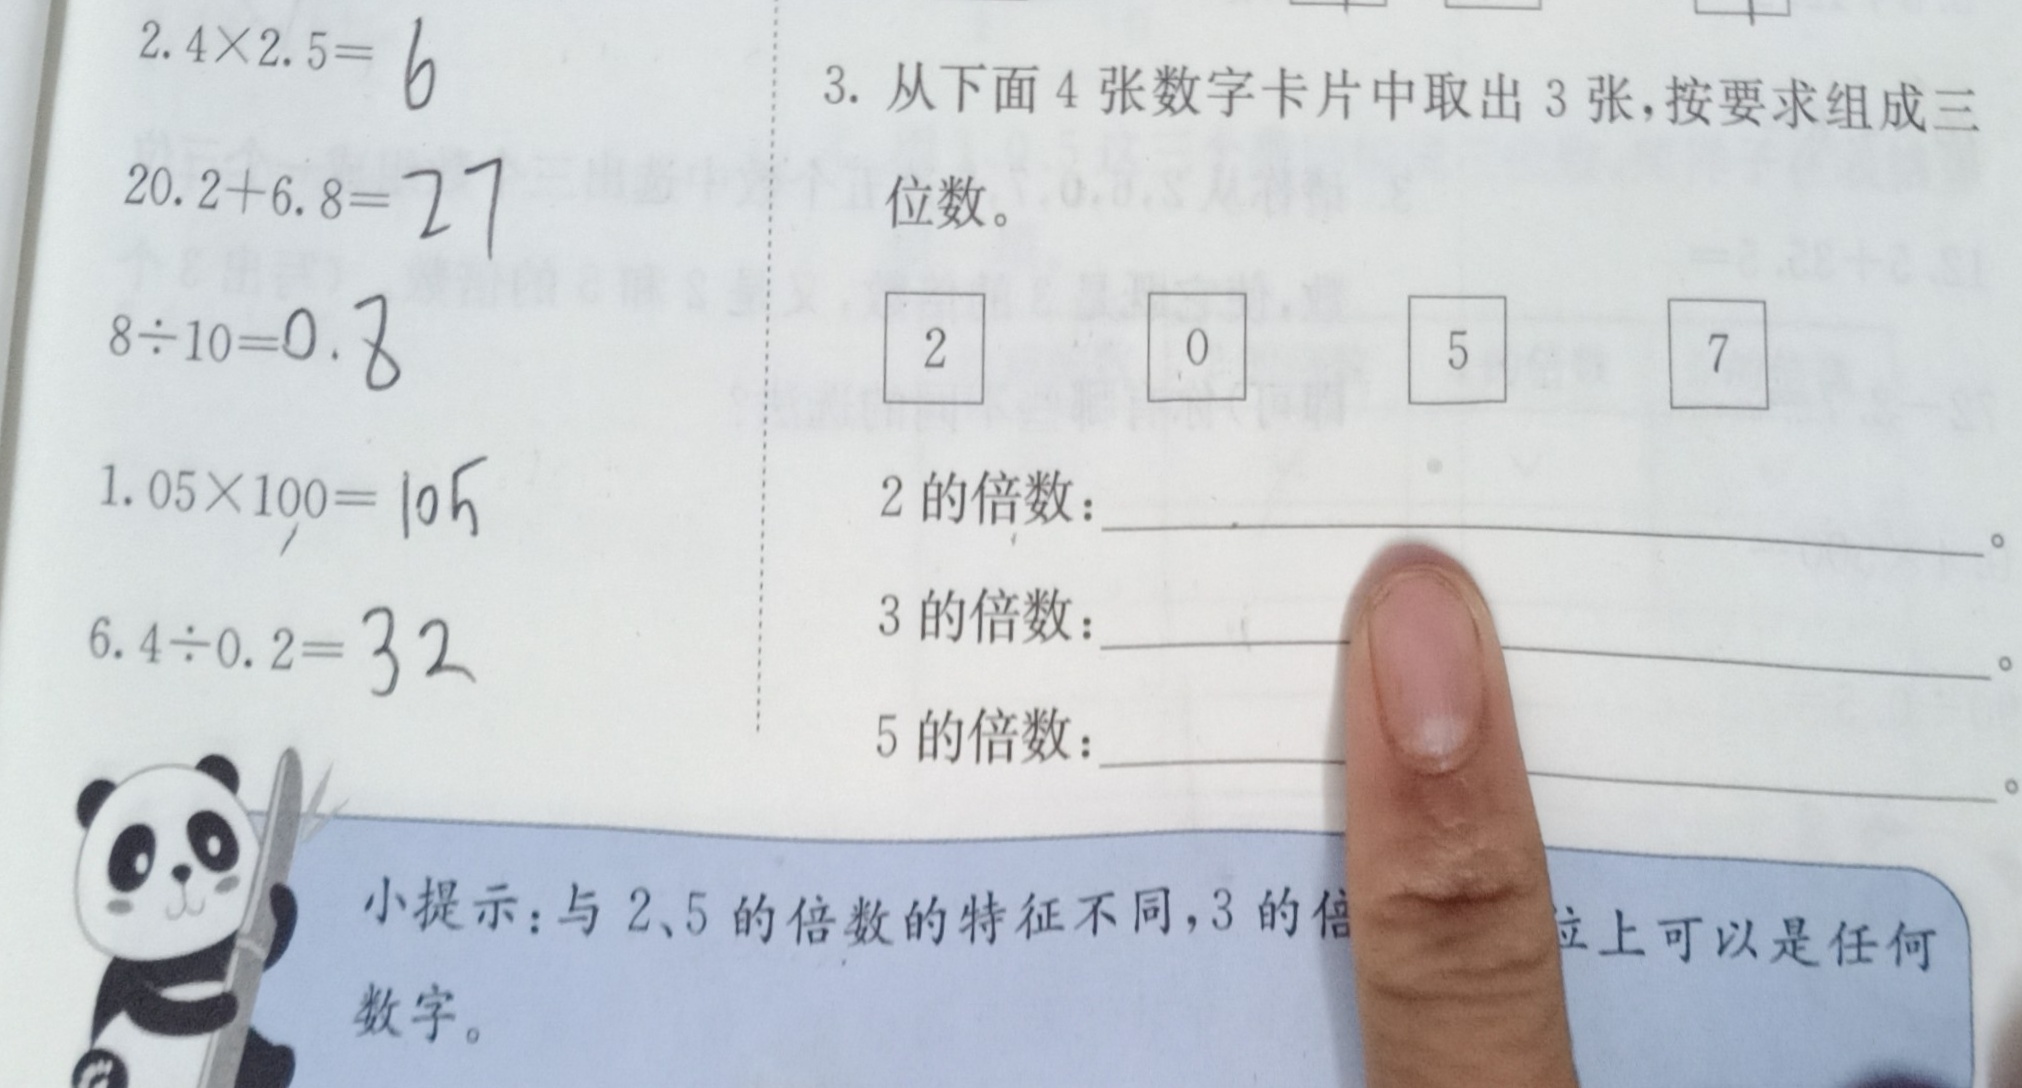 2.4×2.5=6
20.2+6.8=27
8÷10=0.8
1.05×100=105
6.4÷0.2=32
3. 从下面 4 张数字卡片中取出 3 张,按要求组成三
位数。
2 0 5 7
2 的倍数: 。
3 的倍数: 。
5 的倍数: 。
小提示:与 2、5 的倍数的特征不同,3 的倍 位上可以是任何
数字。